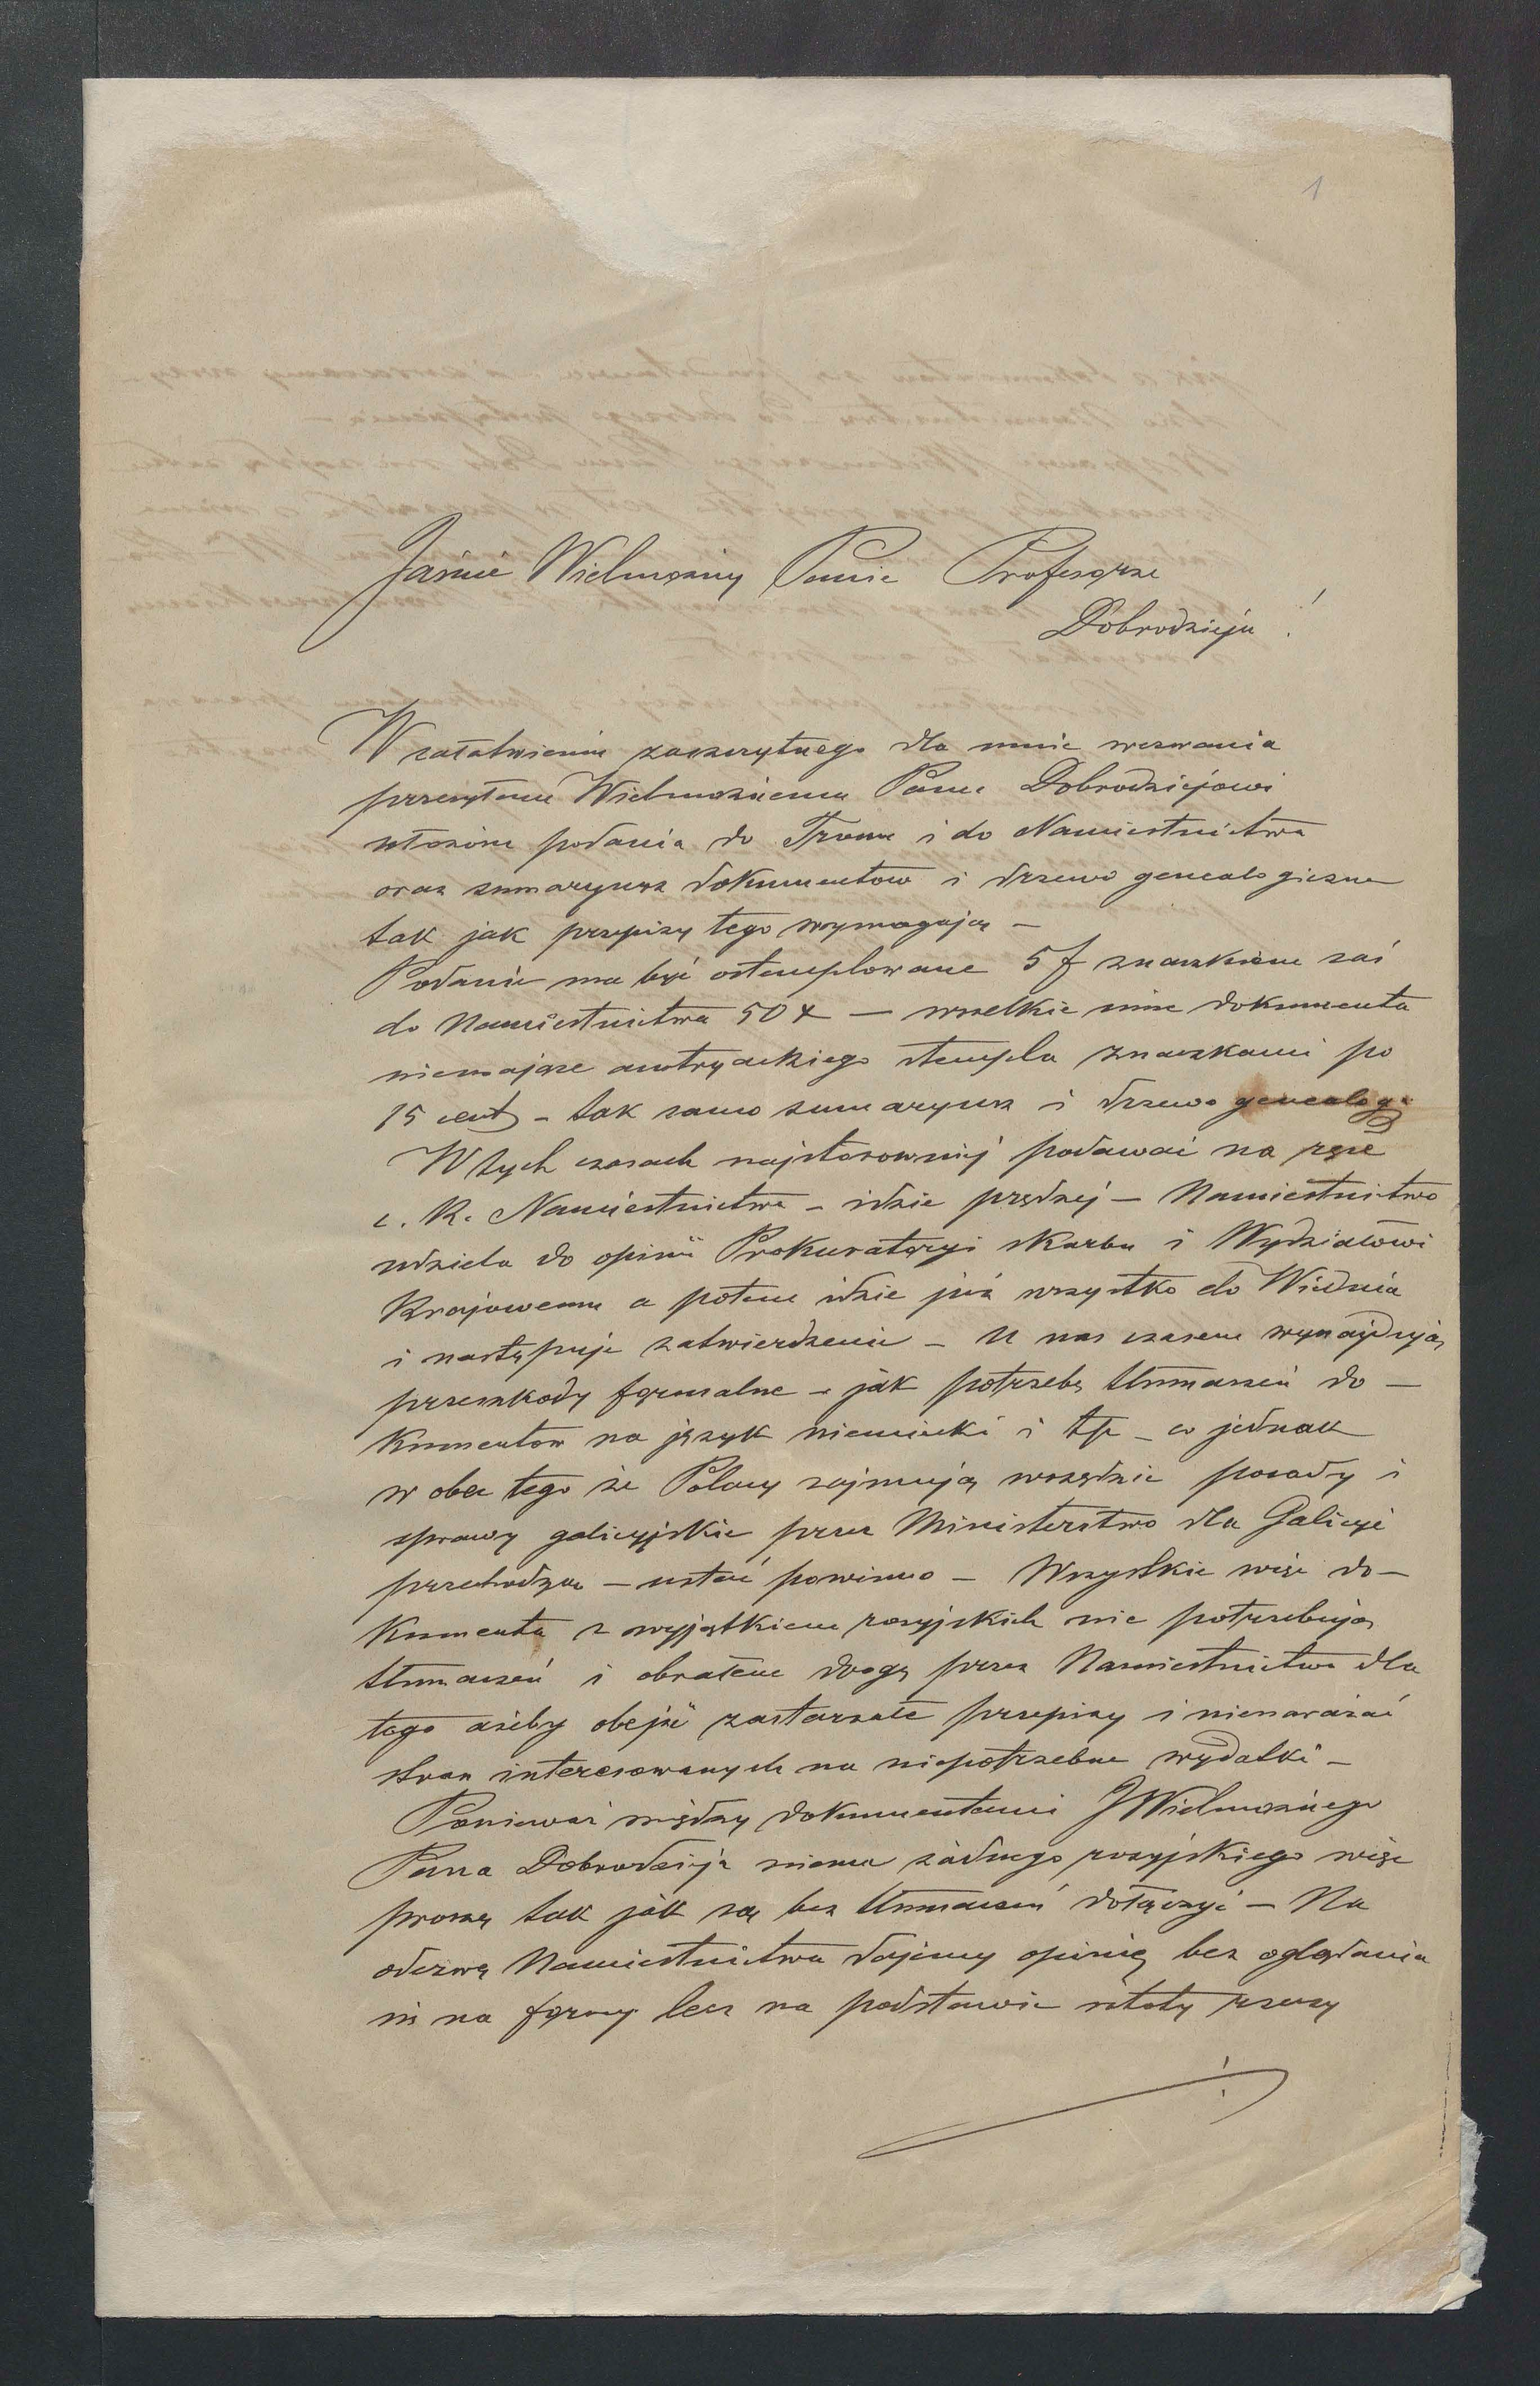 1
Jaśnie Wielmożny Panie Profesorze
Dobrodzieju !
W załatwieniu zaszczytnego dla mnie wezwania
przesyłam Wielmożnemu Panu Dobrodziejowi
złożone podania do Tronu i do Namiestnictwa
oraz sumaryusz dokumentow i drzewo genealogiczne
tak jak przepisy tego wymagają –
Podanie ma być ostemplowane 5 f znaczkiem zaś
do Namiestnictwa 50 x — wszelkie inne dokumenta
niemające austryackiego stempla znaczkami po
15 cent – tak samo sumaryusz i drzewo genealog.
W tych czasach najstosowniej podawać na ręce
c. K. Namiestnictwa – idzie prędzej – Namiestnictwo
udziela do opinii Prokuratoryi skarbu i Wydziałowi
Krajowemu a potem idzie już wszystko do Wiednia
i następuje zatwierdzenie – U nas czasem wynajdują
przeszkody formalne – jak potrzebę tłumaczeń do –
kumentow na język niemiecki i tp – co jednak
w obec tego że Polacy zajmują wszędzie posady i
sprawy galicyjskie przez Ministerstwo dla Galicyi
przechodzą – ustać powinno – Wszystkie więc do –
kumenta z wyjątkiem rosyjskich nie potrzebują
tłumaczeń i obrałem drogę przez Namiestnictwo dla
tego ażeby obejść zastarzałe przepisy i nienarażać
stron interesowanych na niepotrzebne wydatki –
Ponieważ między dokumentami JWielmożnego
Pana Dobrodzieja niema żadnego rosyjskiego więc
proszę tak jak są bez tłumaczeń dołączyć – Na
odezwę Namiestnictwa dajemy opinię bez oglądania
się na formy lecz na podstawie istoty rzeczy